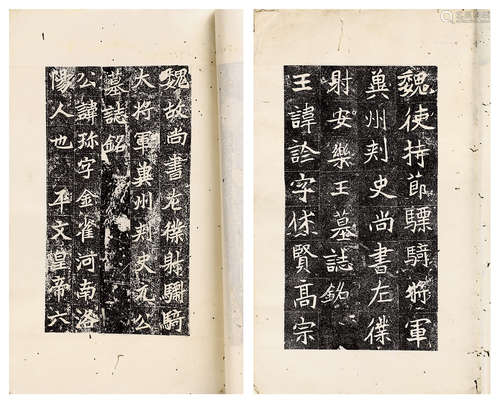 魏故尚書左僕射驃騎
大將軍冀州刺史元公
墓誌銘
公諱珎字金雀河南洛
陽人也 平文皇帝六
魏使持節驃騎將軍
冀州刾史尚書左僕
射安樂王墓誌銘
王諱詮字休賢高宗